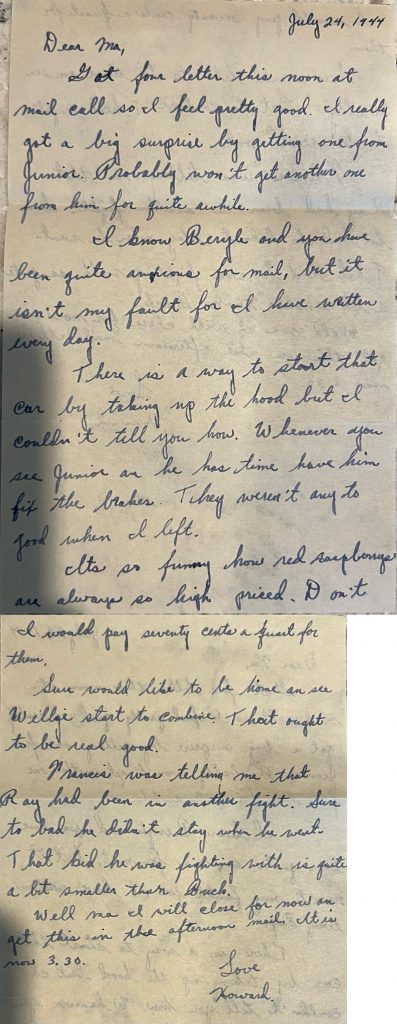 July 24, 1944
Dear Ma,
Got four letter this noon at
mail call so I feel pretty good. I really
got a big surprise by getting one from
Junior. Probably won't get another one
from him for quite awhile.
I know Beryle and you have
been quite anxious for mail, but it
isn't my fault for I have written
every day.
There is a way to start that
car by taking up the hood but I
couldn't tell you how. Whenever you
see Junior an he has time have him
fix the brakes. They weren't any to
good when I left.
Its so funny how red raspberrys
are always so high priced. Don't
I would pay seventy cents a quart for
them.
Sure would like to be home an see
start to combine. That ought
to be real good.
Francis was telling me that
Ray had been in another fight. Sure
to bad he didn't stay when he went.
That kid he was fighting with is quite
a bit smaller than Buck.
Well ma I will close for now an
get this in the afternoon mail. It is
now 3.30.
Love
Howard.